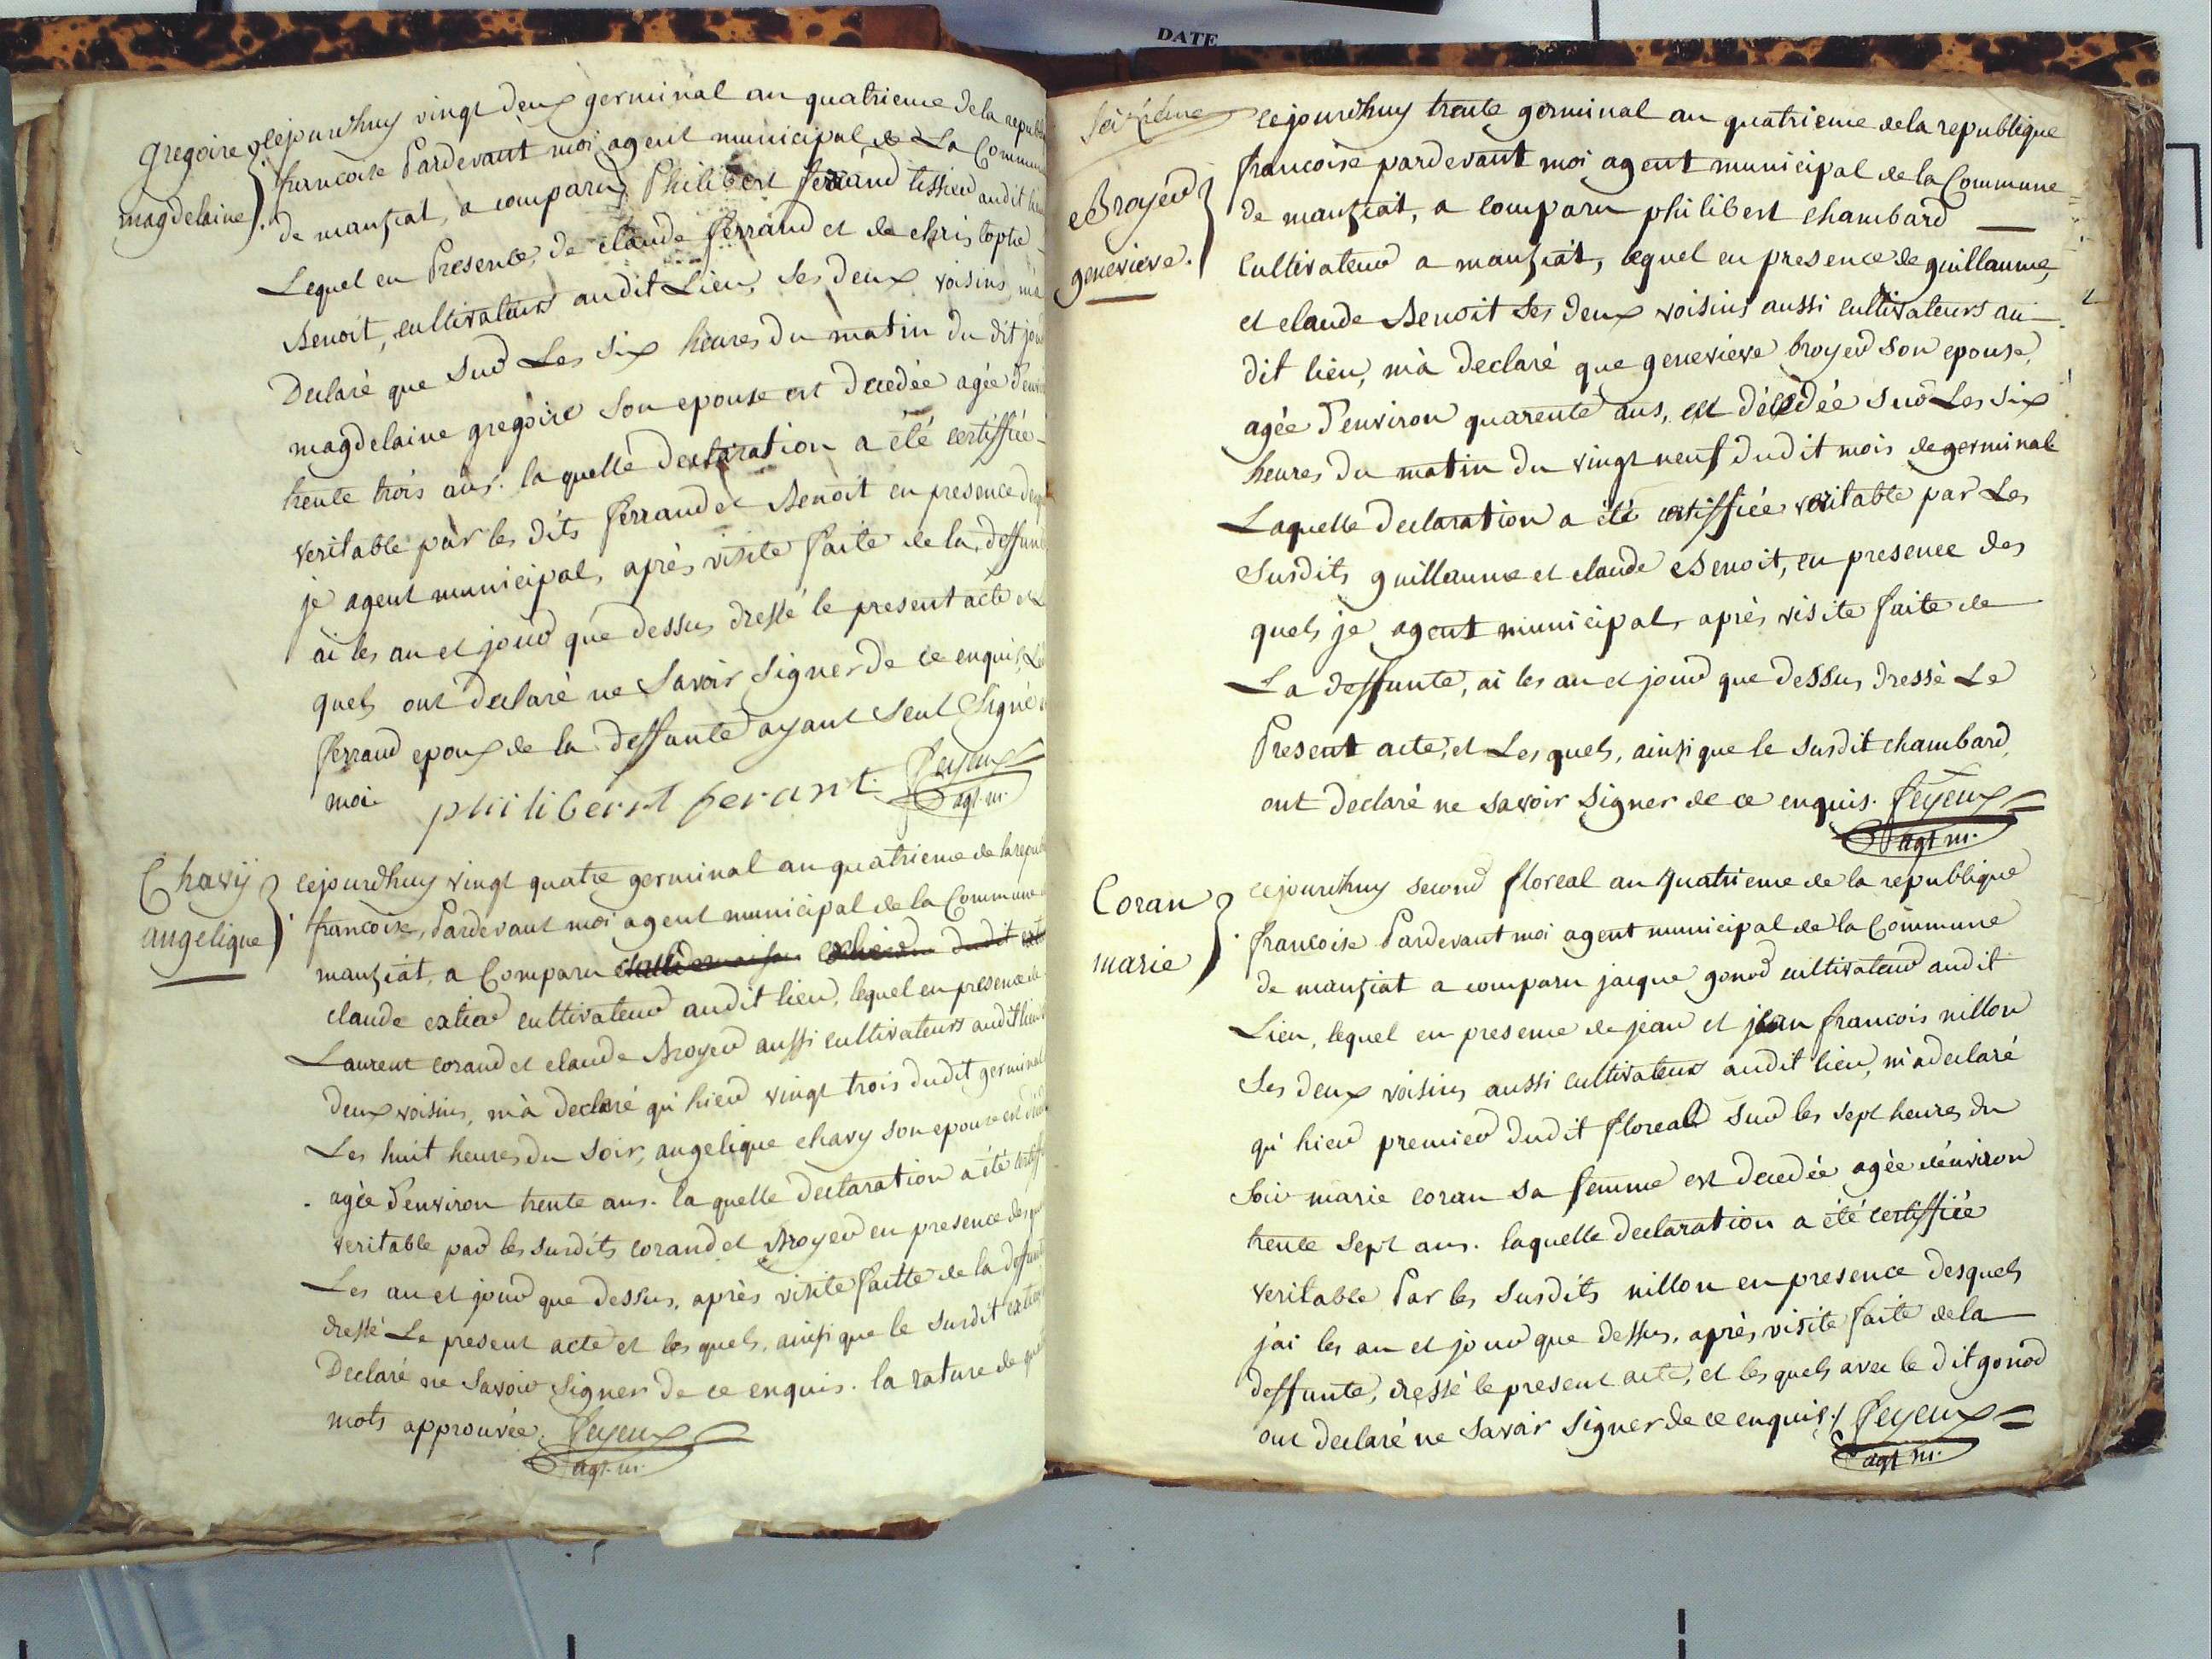 DATE
gregoire
magdelaine
cejourdhuy vingt deux germinal an quatrieme de la republi
francoise Pardevant moi agent municipal de La Commun
de manziat, a comparu Philibert ferrand tissier audit lieu
Lequel en Presence de claude ferrand et de christophe
Benoit, cultivateurs audit Lieu, Ses deux voisins m'a
Declaré que Sur Les Six heures du matin du dit jour
magdelaine gregoire Son epouse est decedée agée d'envi
trente trois ans. la quelle declaration a été certiffiée
veritable par les dits ferrand et Benoit en presence desq
je agent municipal, après visite faite de la deffun
ai les an et jour que dessus dressé le present acte et L
quels ont declaré ne Savoir Signer de ce enquis, Le
ferrand epoux de la deffunte ayant Seul Signé
moi philibernt ferant. feyeux
agt. m.
Chavÿ
angelique
cejourdhuy vingt quatre germinal an quatrieme de la repub
francoise, Pardevant moi agent municipal de la Commune
manziat, a Comparu dudit
claude extier cultivateur audit lieu, lequel en presence de
Laurent corand et claude Broyer aussi cultivateurs audit lieu
deux voisins, m'a declaré qu'hier vingt trois dudit germinal
Les huit heures du Soir, angelique chavy son epouse est déce
agée d'environ trente ans. la quelle declaration a été certiff
veritable par les susdits corand et Broyer en presence desqu
Les an et jour que dessus, après visite faitte de la deffunt
dressé Le present acte et les quels, ainsi que le susdit extier
Declaré ne Savoir Signer de ce enquis. la rature de quat
mots approuvée. feyeux
agt. m.
Seizieme
Broyer
genevieve.
cejourdhuy trente germinal an quatrieme de la republique
francoise pardevant moi agent municipal de la Commune
de manziat, a comparu philibert chambard
Cultivateur a manziat, lequel en presence de guillaume,
et claude Benoit Ses deux voisins aussi cultivateurs au
dit lieu, m'a declaré que genevieve broyer son epouse,
agée d'environ quarente ans, est décédée sur Les Six
heures du matin du vingt neuf dudit mois de germinal
Laquelle declaration a été certiffiée veritable par Les
Susdits guillaume et claude Benoit, en presence des
quels je agent municipal, après visite faite de
La deffunte, ai les an et jour que dessus dressé Le
Present acte, et Les quels, ainsi que le susdit chambard
ont declaré ne savoir signer de ce enquis. feyeux
agt m.
Coran
marie
cejourdhuy second floreal an quatrieme de la republique
francoise Pardevant moi agent municipal de la Commune
de manziat a comparu jacque gonod cultivateur audit
Lieu, lequel en presence de jean et jean francois nillon
Ses deux voisins aussi cultivateurs audit lieu, m'a declaré
qu'hier premier dudit floreal sur les sept heures du
Soir marie coran sa femme est decedée agée d'environ
trente Sept ans. laquelle declaration a été certiffiée
veritable Par les Susdits nillon en presence desquels
j'ai les an et jour que dessus, après visite faite de la
deffunte, dressé le present acte, et les quels avec le dit gonod
ont declaré ne Savoir Signer de ce enquis./ feyeux
agt m.